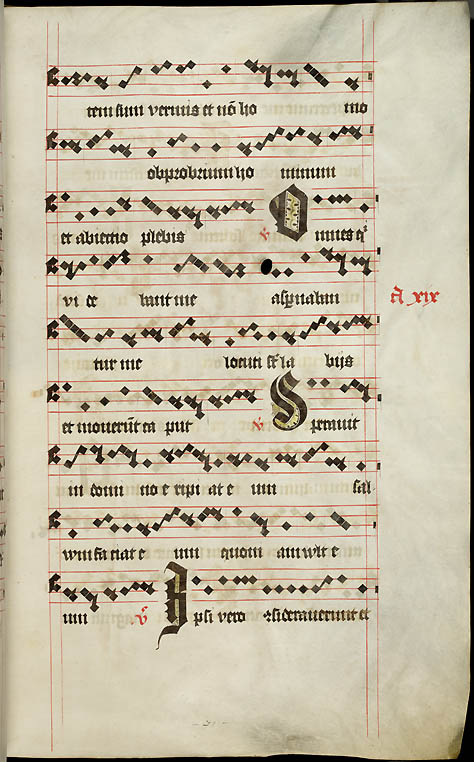 tem sum vermis et nō ho mo
obprobrium ho minum
et abiectio plebis ℣ Omnes q̄
vi de bant me aspnaban
tur me locuti sūt la bijs
et mouerūt ca put ℣ Sperauit
in domi no e ripi at e um sal
uum fa ciat e um quoni am wlt e
um ℣ Ipsi vero ꝯsiderauerunt et
xix